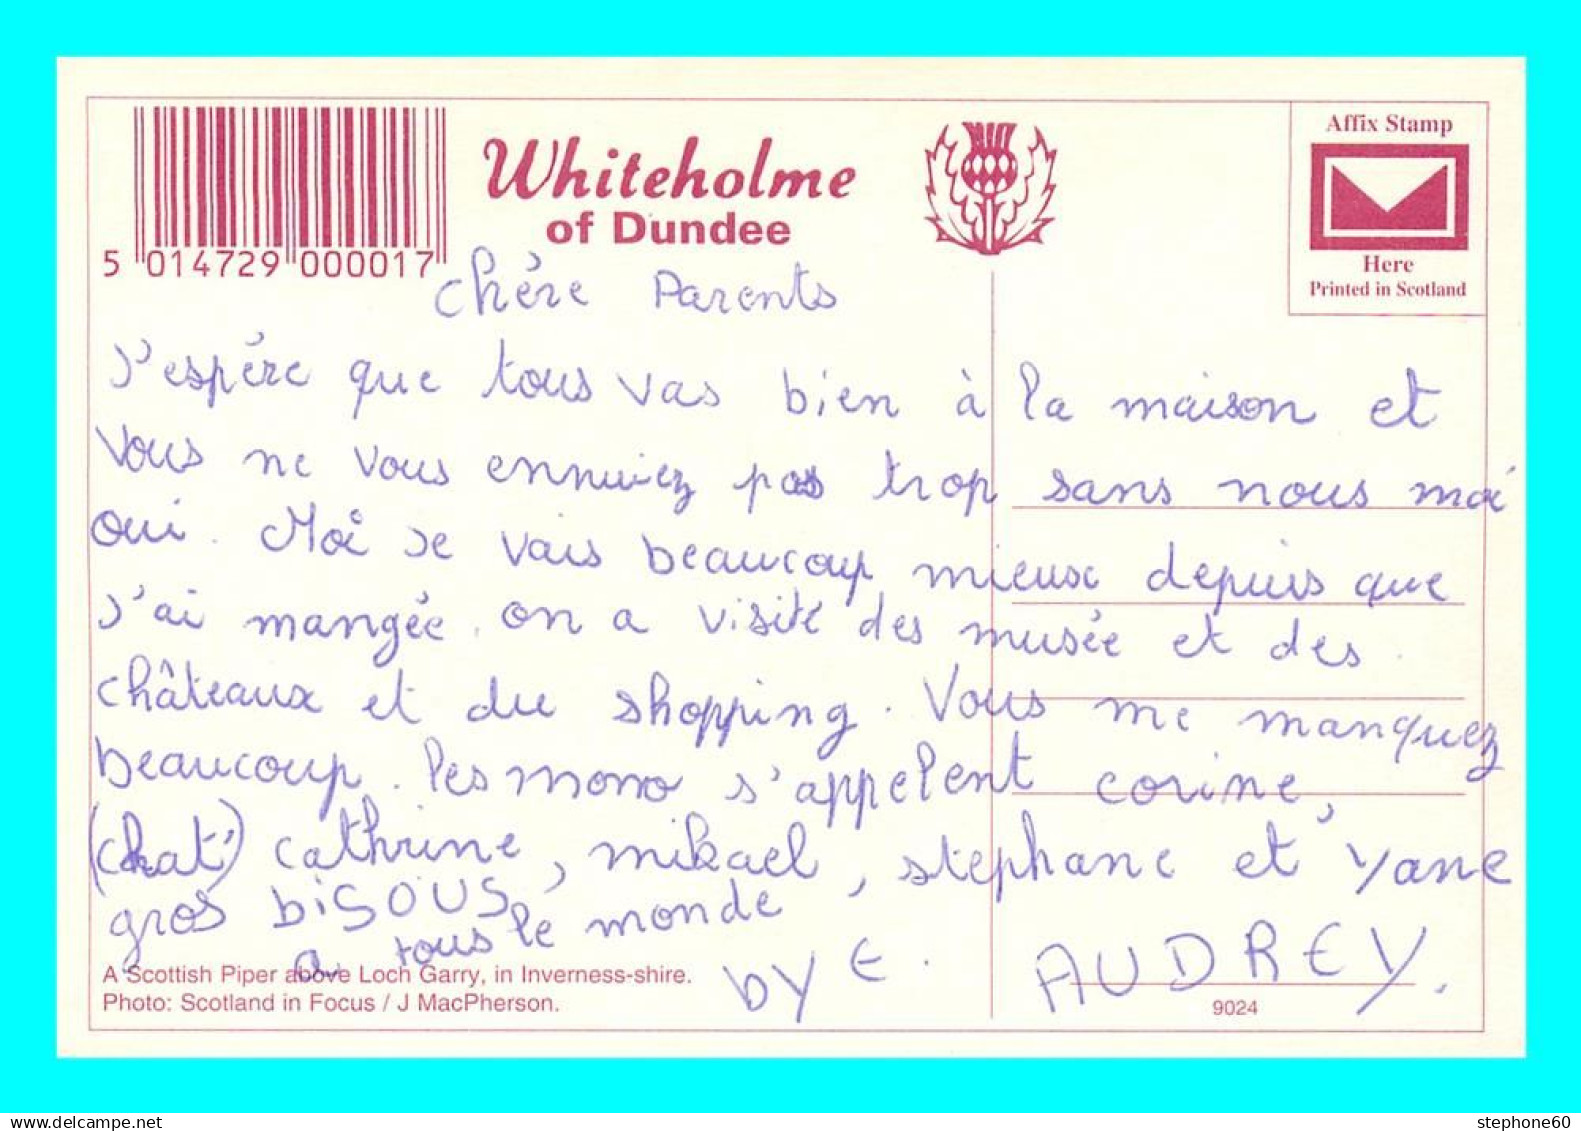 Whiteholme
of Dundee
Affix Stamp
Here
Printed in Scotland
5 014729 000017
chére Parents
J'espére que tous vas bien à la maison et
vous ne vous ennuiez pas trop sans nous moi
oui. Moi je vais beaucoup mieux depuis que
j'ai mangée. on a visité des musée et des
châteaux et du shopping. Vous me manquez
beaucoup. les mono s'appelent corine,
(chat) cathrine, mikael, stephane et Yane
gros biSOUS
a tous le monde
bye.
AUDREY.
A Scottish Piper above Loch Garry, in Inverness-shire.
Photo: Scotland in Focus / J MacPherson.
9024
stephone60